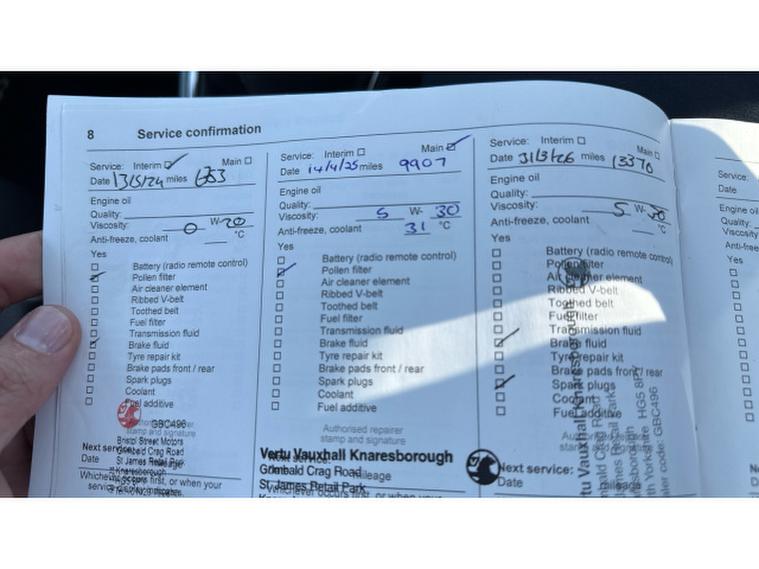 8 Service confirmation
Service: Interim Main
Date 13/5/24 miles
Engine oil
Quality:
Viscosity: 0 W- 20
Anti-freeze, coolant °C
Yes
Battery (radio remote control)
Pollen filter
Air cleaner element
Ribbed V-belt
Toothed belt
Fuel filter
Transmission fluid
Brake fluid
Tyre repair kit
Brake pads front / rear
Spark plugs
Coolant
Fuel additive
GBC496
Bristol Street Motors
Grimbald Crag Road
St James Retail Park
Knaresborough
Next service:
Date mileage
Whichever occurs first, or when your
service display indicates.
Service: Interim Main
Date 14/4/25 miles 9907
Engine oil
Quality:
Viscosity: 5 W- 30
Anti-freeze, coolant 31 °C
Yes
Battery (radio remote control)
Pollen filter
Air cleaner element
Ribbed V-belt
Toothed belt
Fuel filter
Transmission fluid
Brake fluid
Tyre repair kit
Brake pads front / rear
Spark plugs
Coolant
Fuel additive
Authorised repairer
stamp and signature
Vertu Vauxhall Knaresborough
Grimbald Crag Road
mileage
St. James Retail Park
Whichever occurs first, or when your
Service: Interim Main
Date 31/3/26 miles 13370
Engine oil
Quality:
Viscosity: 5 W- 30
Anti-freeze, coolant °C
Yes
Battery (radio remote control)
Pollen filter
Air cleaner element
Ribbed V-belt
Toothed belt
Fuel filter
Transmission fluid
Brake fluid
Tyre repair kit
Brake pads front / rear
Spark plugs
Coolant
Fuel additive
Next service:
Date mileage
Service:
Date
Engine oil
Quality:
Viscosity
Anti-free
Yes